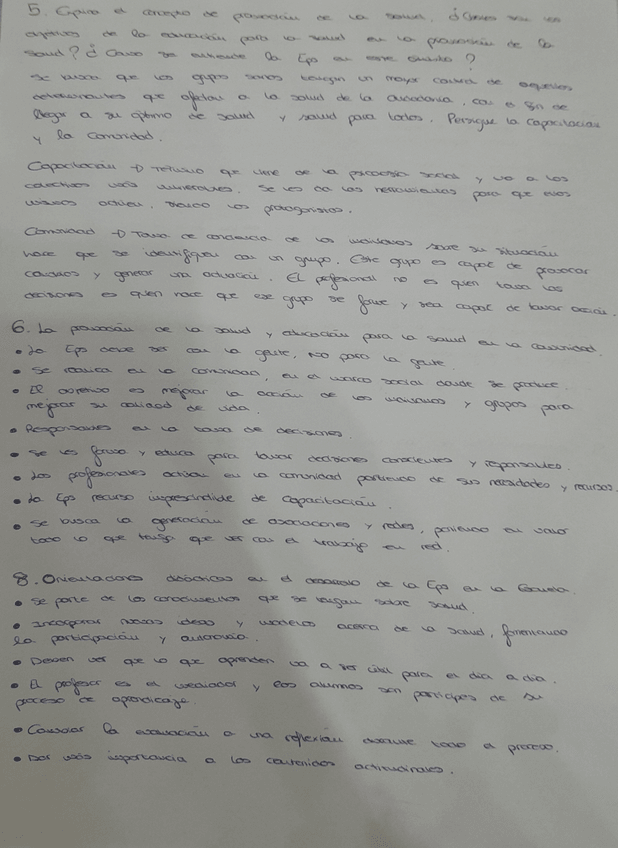 5. Explica el concepto de promoción de la salud. ¿Cuáles son los
objetivos de la educación para la salud en la promoción de la
salud? ¿Cómo se entiende la EpS en este ámbito?
Se busca que los grupos sociales tengan un mayor control de aquellos
determinantes que afectan a la salud de la ciudadanía, con el fin de
llegar a su óptimo de salud y salud para todos. Persigue la capacitación
y la comunidad.
Capacitación → Término que viene de la psicología social y va a los
colectivos más vulnerables. Se les da las herramientas para que ellos
mismos actúen, siendo los protagonistas.
Comunidad → Toma de conciencia de los individuos sobre su situación
hace que se identifiquen con un grupo. Este grupo es capaz de provocar
cambios y generar una actuación. El profesional no es quien toma las
decisiones es quien hace que ese grupo se forme y sea capaz de tomar acción.
6. La promoción de la salud y educación para la salud en la comunidad.
• La EpS debe ser con la gente, NO para la gente.
• Se realiza en la comunidad, en el marco social donde se produce.
• El objetivo es mejorar la acción de los individuos y grupos para
mejorar su calidad de vida.
• Responsables en la toma de decisiones.
• Se les forma y educa para tomar decisiones conscientes y responsables.
• Los profesionales actúan en la comunidad partiendo de sus necesidades y recursos.
• La EpS recurso imprescindible de capacitación.
• Se busca la generación de asociaciones y redes, poniendo en valor
todo lo que tenga que ver con el trabajo en red.
8. Orientaciones didácticas en el desarrollo de la EpS en la Escuela.
• Se parte de los conocimientos que se tengan sobre salud.
• Incorporar nuevas ideas y modelos acerca de la salud, fomentando
la participación y autonomía.
• Deben ver que lo que aprenden va a ser útil para el día a día.
• El profesor es el mediador y los alumnos son partícipes de su
proceso de aprendizaje.
• Cambiar la evaluación a una reflexión durante todo el proceso.
• Dar más importancia a los contenidos actitudinales.